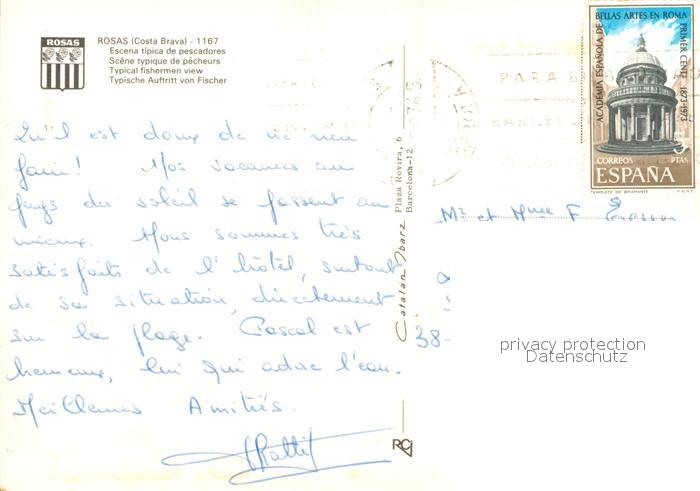 ROSAS
ROSAS (Costa Brava) - 1167
Escena típica de pescadores
Scène typique de pêcheurs
Typical fishermen view
Typische Auftritt von Fischer
Qu'il est doux de ne rien
faire! Nos vacances au
pays du soleil se passent au
mieux. Nous sommes très
satisfaits de l'hôtel, surtout
de sa situation, directement
sur la plage. Pascal est
heureux, lui qui adore l'eau.
Meilleures Amitiés.
Catalan Ibarz
Plaza Rovira, 6
Barcelona-12
RC
PARA
BARCEL
ACADEMIA ESPAÑOLA DE BELLAS ARTES EN ROMA
PRIMER CENT. 1873-1973
5 PTAS
CORREOS
ESPAÑA
TEMPLETE DE BRAMANTE
F.N.M.T.
Mr et Mme F
38-
privacy protection
Datenschutz